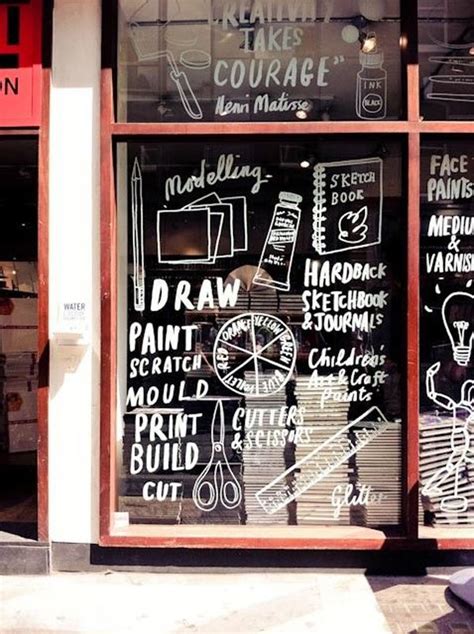 CREATIVITY
TAKES
COURAGE"
Henri Matisse
INK
BLACK
ON
Modelling
SKETCH
BOOK
FACE
PAINTS
MEDIUM
& VARNISH
HARDBACK
SKETCHBOOK
& JOURNALS
DRAW
PAINT
SCRATCH
MOULD
PRINT
BUILD
CUT
RED ORANGE YELLOW GREEN BLUE VIOLET
Children's
Art & Craft
Paints
CUTTERS
& SCISSORS
Glitter
WATER